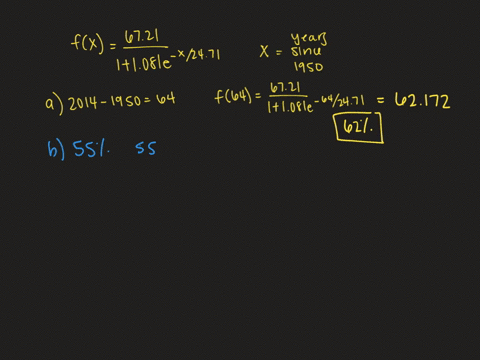 f(x) = 67.21 / (1 + 1.081e^(-x/24.71))    x = years since 1950
a) 2014 - 1950 = 64    f(64) = 67.21 / (1 + 1.081e^(-64/24.71)) = 62.172
62%
b) 55%    55